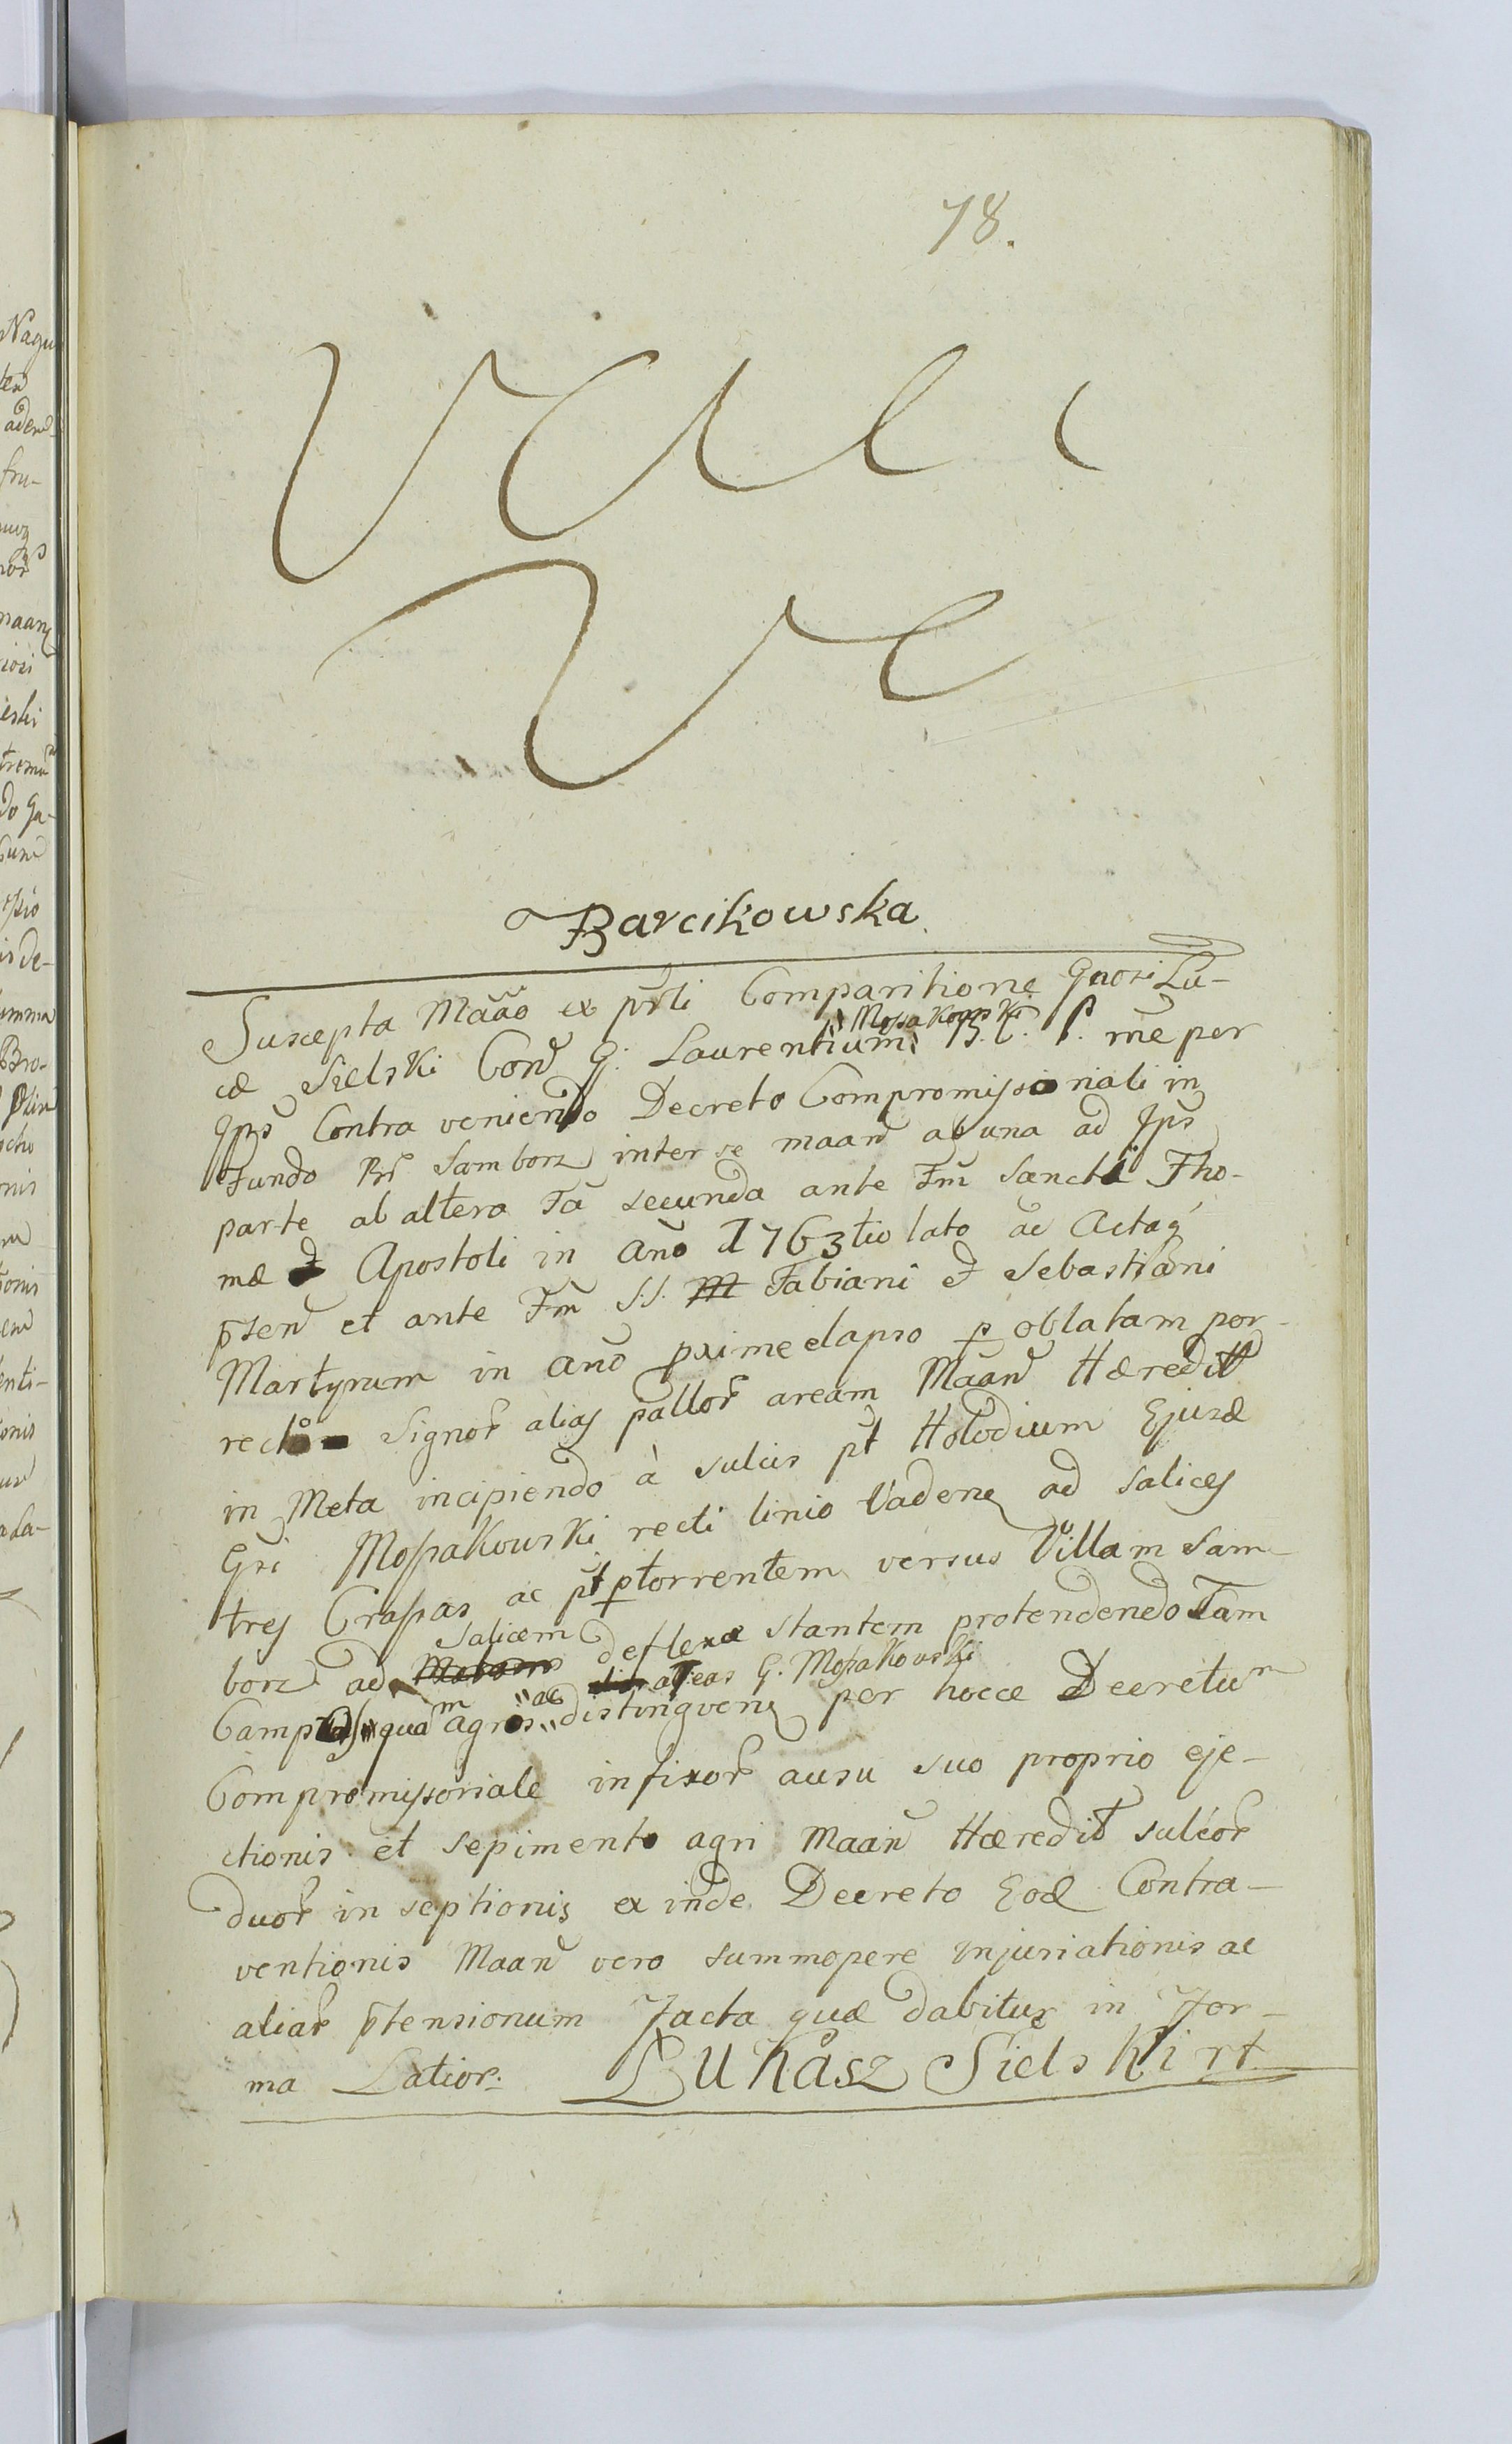 78.
Barcikowska
Suscepta Maão ex prti Comparitione Gnosi Lu-
cæ Sielski Con̄ G. Laurentium Mossakowski B. C. S. rñe per
Ips̄ Contra veniendo Decreto Compromissionali in
Fundo Br̄ Samborz inter se maan̄ ab una ad Ips̄
parte ab altera Fã secunda ante Fm̄ Sancti Tho-
mæ Apostoli in Año 1763tio lato ac Actaq́
p̄sen̄ et ante Fm̄ S.S. Fabiani et Sebastiani
Martyrum in año p̄xime elapso p oblatam por-
rect Signor̄ alias pallor̄ aream Maan̄ Hæredit̄
in Meta incipiendo à sulcis pt̄ Holodium Ejusd̄
Gsi Mossakowski recti linio Vaden̄ ad salices
tres Crassas ac pt̄ p torrentem versus Villam Sam-
borz ad Salicem deflexæ stantem protendendo Tam
Campos quam agros ac alteas G. Mossakowski distinguen̄ per hocce Decretum
Compromissoriale infixor̄ ausu suo proprio eje-
ctionis et sepimento agri Maan̄ Hæredit̄ sulcor̄
duor̄ in septionis ex inde Decreto Eod̄ Contra-
ventionis Maan̄ vero summopere injuriationis ac
aliar̄ p̄tensionum Facta quæ dabitur in For-
ma Latior: Łukasz Sielski rt